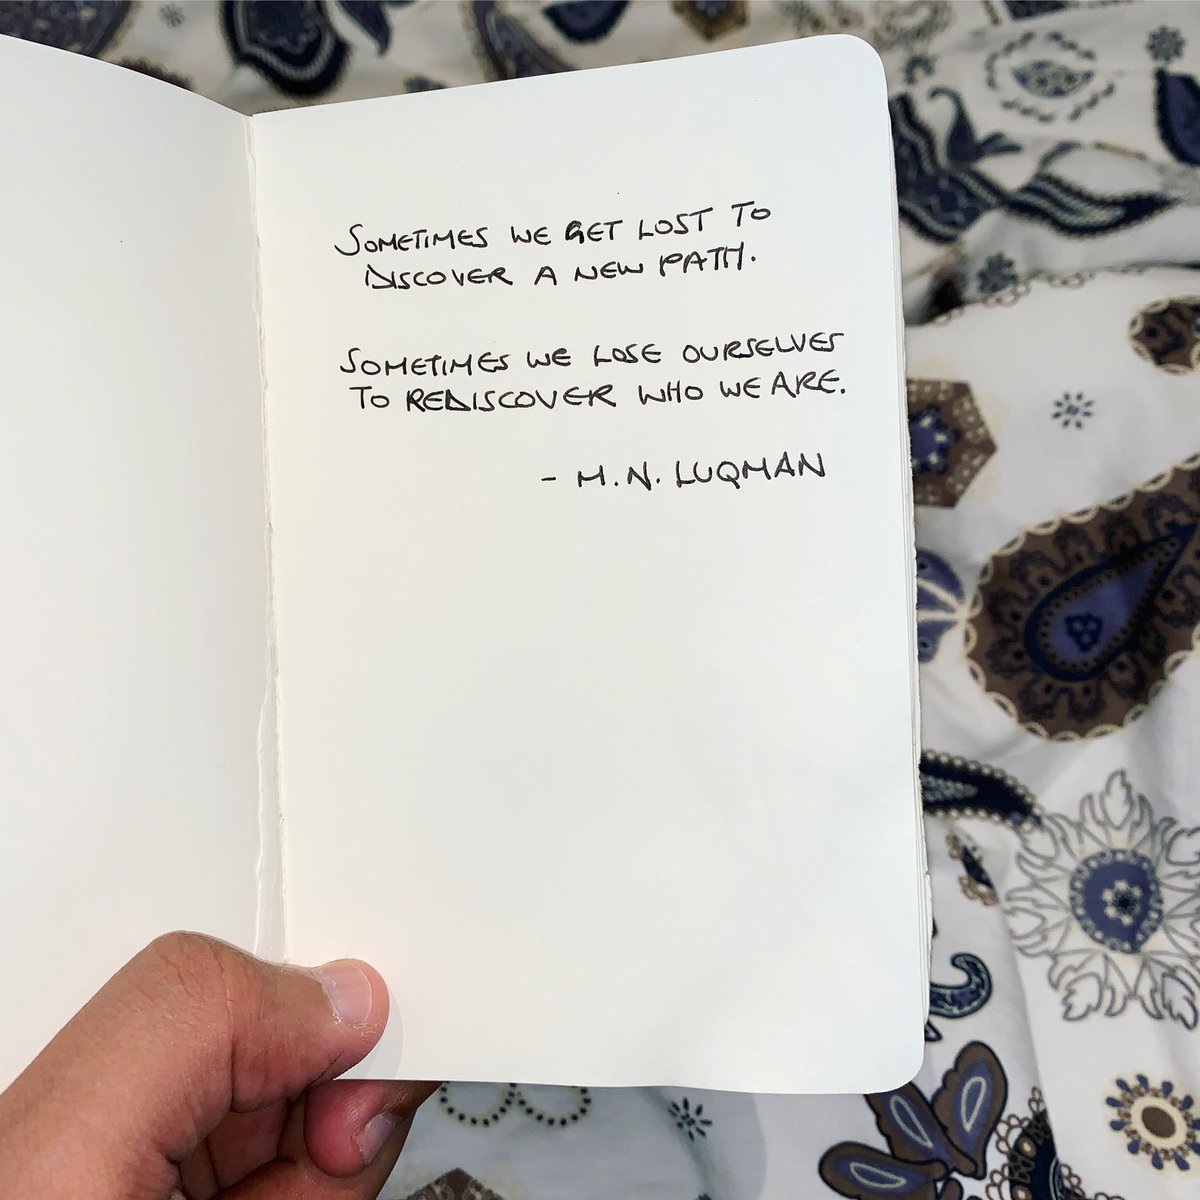 SOMETIMES WE GET LOST TO
DISCOVER A NEW PATH.
SOMETIMES WE LOSE OURSELVES
TO REDISCOVER WHO WE ARE.
- M.N. LUQMAN